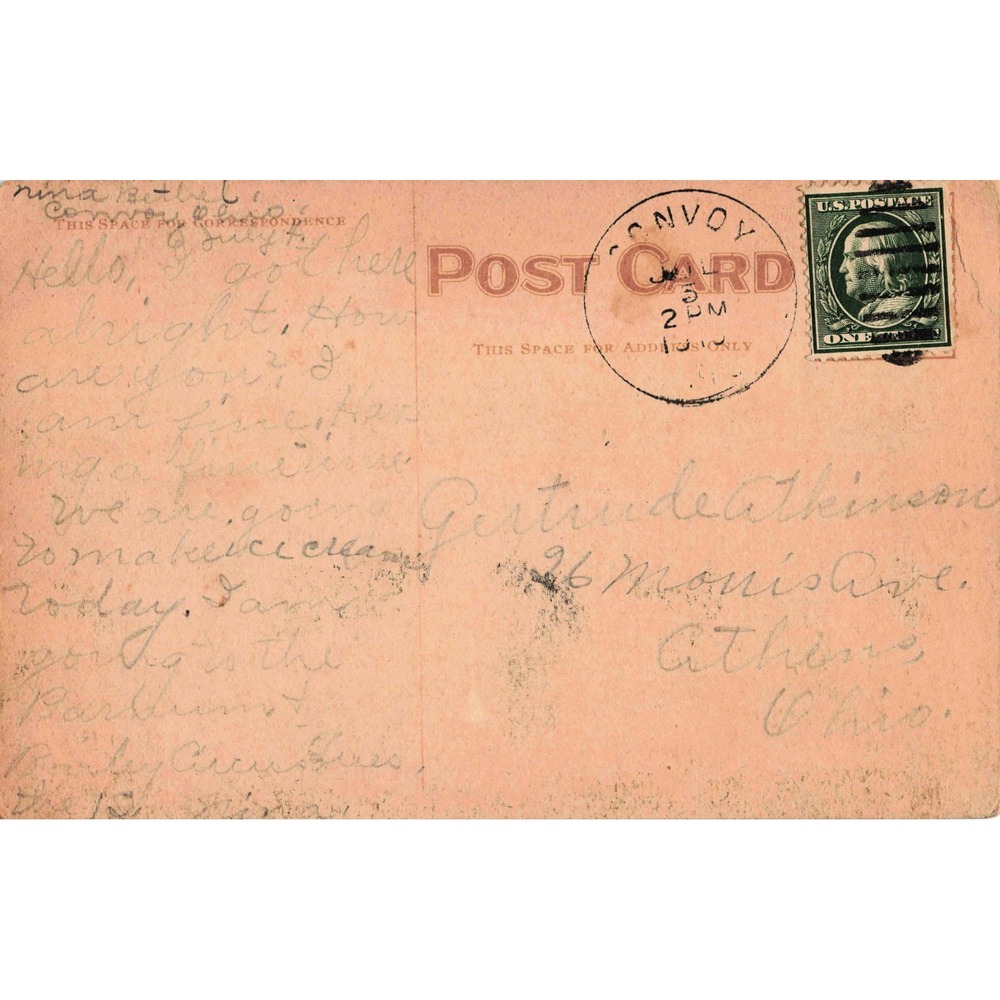 Nina Bethel,
Convoy Ohio.
THIS SPACE FOR CORRESPONDENCE
July 4.
Hello, I got here
alright. How
are you? I
am fine. Hav
ing a fine time
We are going
to make ice cream
today. I am
going to the
Barnum &
Bailey Circus Tues,
the Nina,
POST CARD
THIS SPACE FOR ADDRESS ONLY
CONVOY
JUL
5
2 PM
U.S. POSTAGE
ONE
Gertrude Atkinson
26 Morris Ave.
Athens,
Ohio.